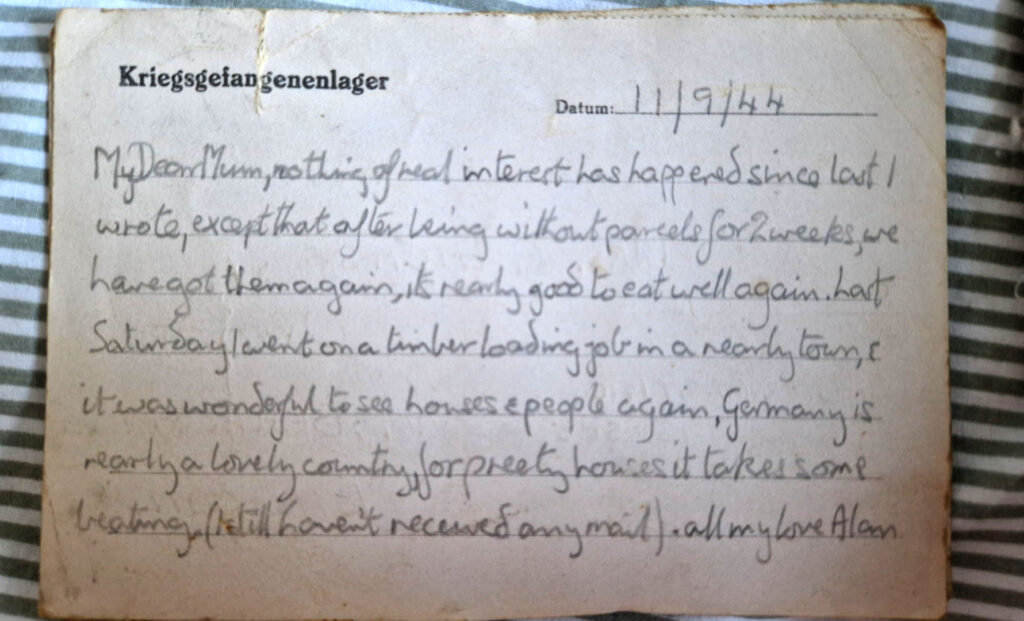 Kriegsgefangenenlager
Datum: 11/9/44
My Dear Mum, nothing of real interest has happened since last I
wrote, except that after being without parcels for 2 weeks, we
have got them again, it's really good to eat well again. Last
Saturday I went on a timber loading job in a nearby town, &
it was wonderful to see houses & people again, Germany is
really a lovely country, for preety houses it takes some
beating, (I still haven't received any mail). all my love Alan